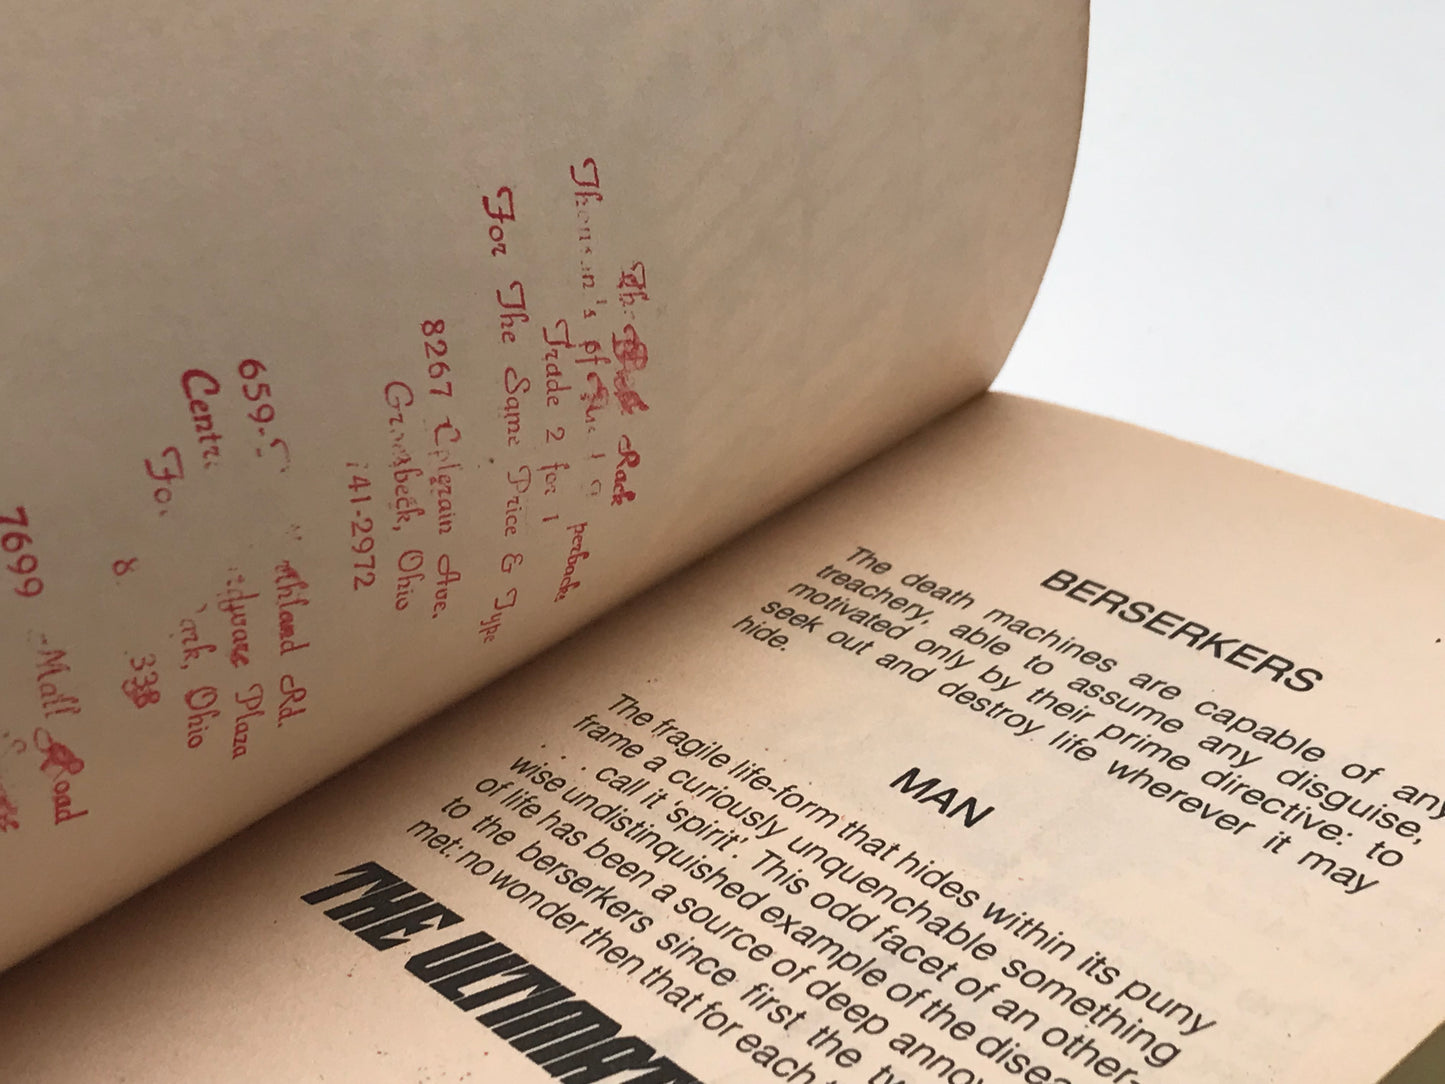 The Book Rack
Thousan's of Used Paperbacks
Trade 2 for 1
For The Same Price & Type
8267 Colerain Ave.
Groesbeck, Ohio
741-2972
Ashland Rd.
Plaza
Ohio
659-5
338
7699 Mall Road
BERSERKERS
The death machines are capable of any
treachery, able to assume any disguise,
motivated only by their prime directive: to
seek out and destroy life wherever it may
hide.
MAN
The fragile life-form that hides within its puny
frame a curiously unquenchable something
. . . call it 'spirit'. This odd facet of an other-
wise undistinguished example of the disea
of life has been a source of deep anno
to the berserkers since first the tw
met: no wonder then that for each
THE ULTIMAT